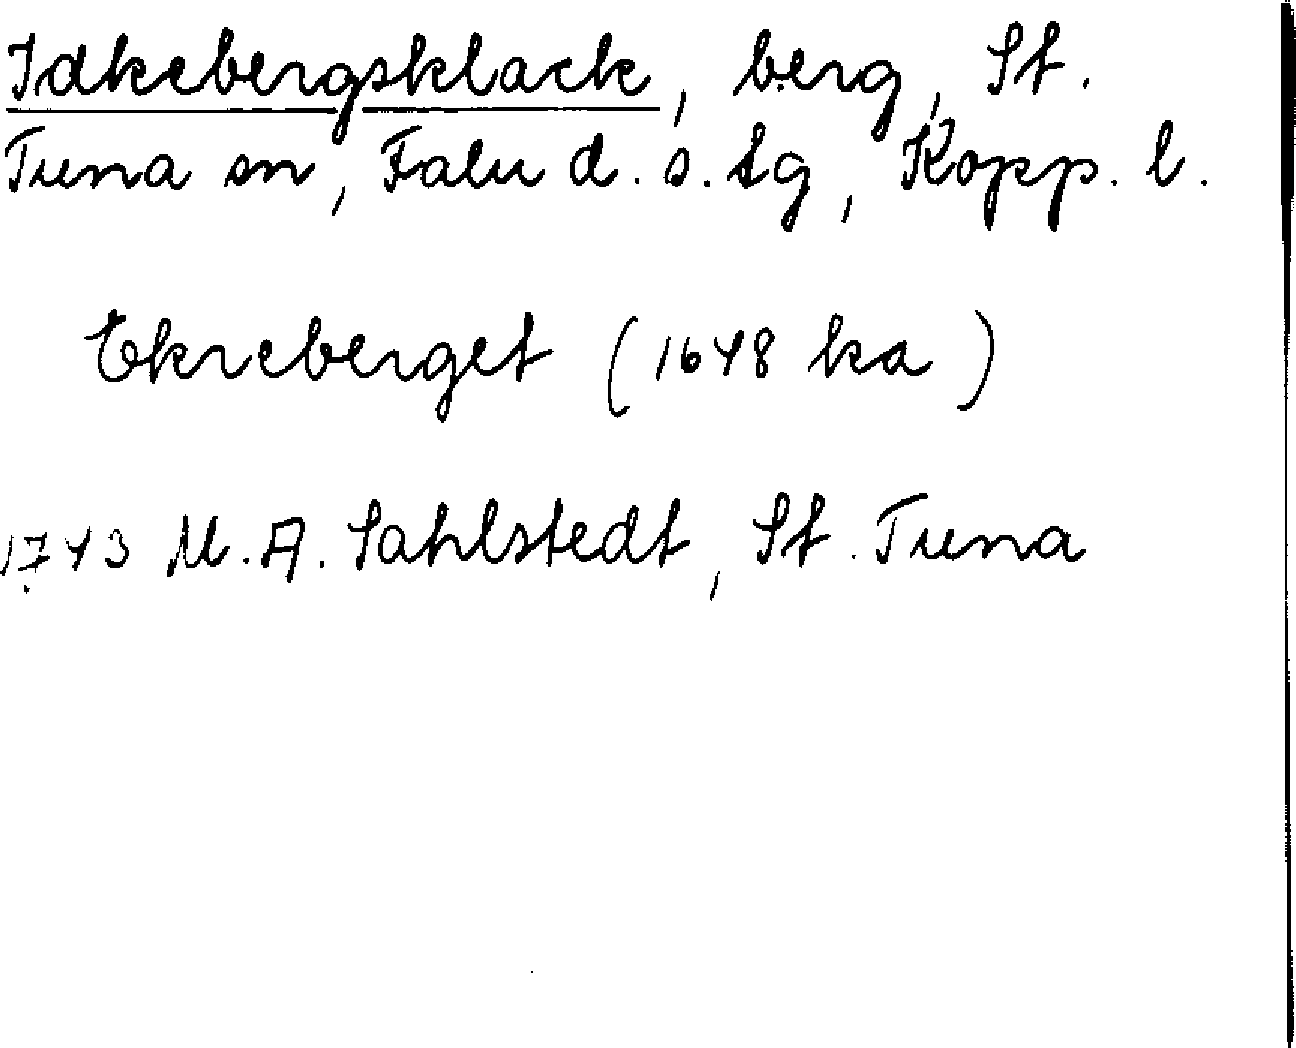 Idkebergsklack, berg, St.
Tuna sn, Falu d. s. tg, Kopp. l.
Ekreberget (1648 ka)
1743 M. A. Sahlstedt, St. Tuna